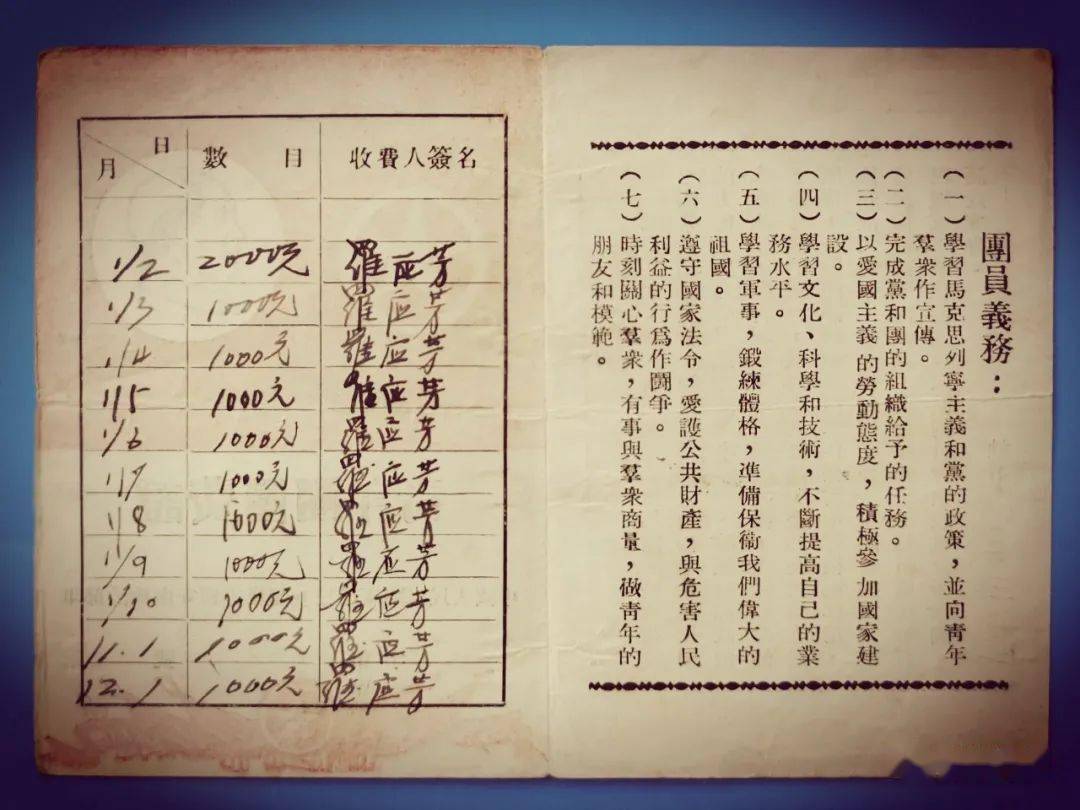 團員義務：
（一）學習馬克思列寧主義和黨的政策，並向青年
羣衆作宣傳。
（二）完成黨和團的組織給予的任務。
（三）以愛國主義的勞動態度，積極參加國家建
設。
（四）學習文化、科學和技術，不斷提高自己的業
務水平。
（五）學習軍事，鍛練體格，準備保衞我們偉大的
祖國。
（六）遵守國家法令，愛護公共財產，與危害人民
利益的行爲作鬪爭。
（七）時刻關心羣衆，有事與羣衆商量，做青年的
朋友和模範。
月 日 數 目 收費人簽名
1/2 2000元 羅应芳
1/3 1000元 羅应芳
1/4 1000元 羅应芳
1/5 1000元 羅应芳
1/6 1000元 羅应芳
1/7 1000元 羅应芳
1/8 1000元 羅应芳
1/9 1000元 羅应芳
1/10 1000元 羅应芳
11.1 1000元 羅应芳
12.1 1000元 羅应芳